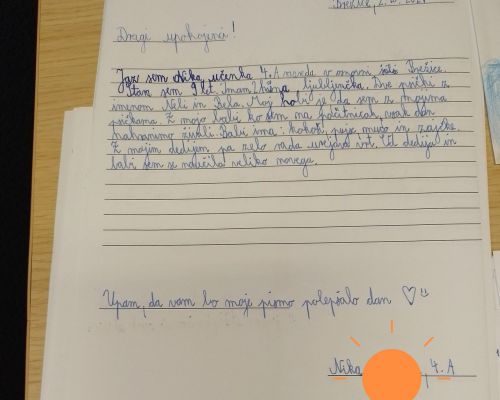 Brežice, 2.
Dragi upokojenci!
Jaz sem Nika, učenka 4. A razreda v osnovni šoli Brežice.
Stara sem 9 let. Imam ljubljenčka. Dve ptički z
imenom Neli in Bela. Moj hobi je da sem z mojima
ptičkama. Z mojo babi ko sem na počitnicah, vsak dan
nahranimo živali. Babi ima: kokoši, psa, muco in zajčke.
Z mojim dedijem pa zelo rada urejava vrt. Od dedija in
babi sem se naučila veliko novega.
Upam, da vam bo moje pismo polepšalo dan ♡☺
Nika 4. A